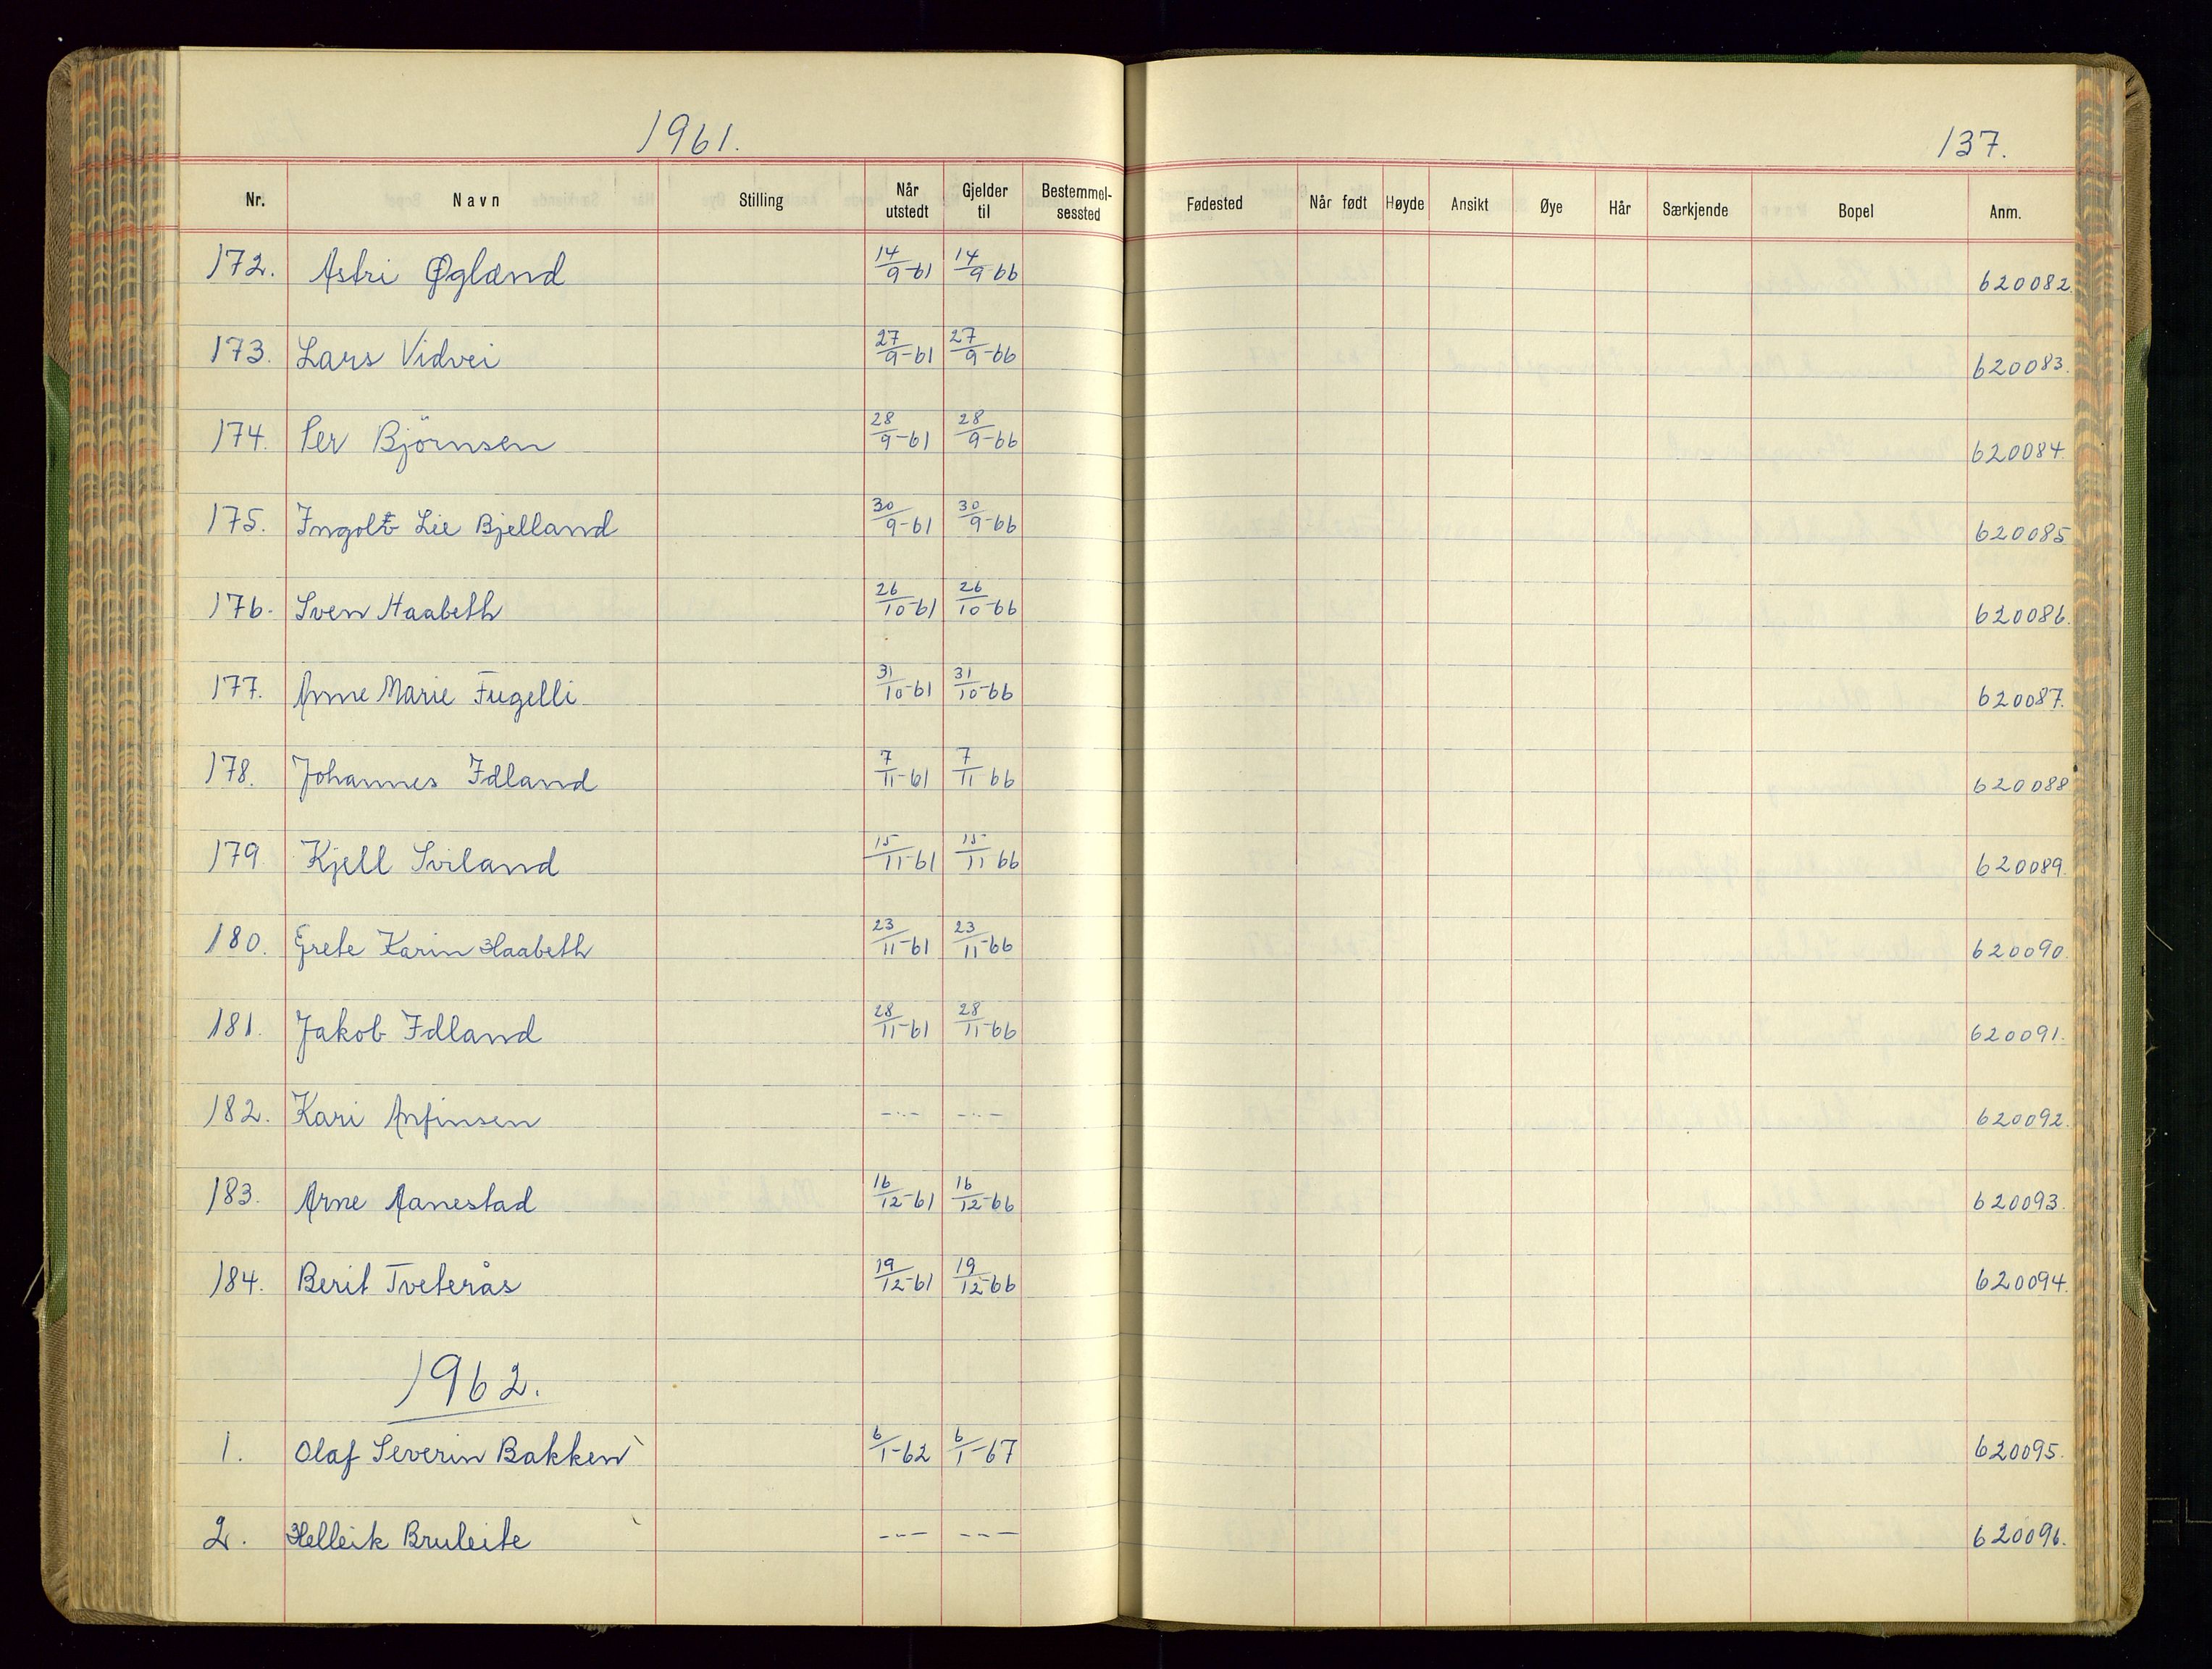 1961.
137.
Nr. Navn Stilling Når utstedt Gjelder til Bestemmelsessted Fødested Når født Høyde Ansikt Øye Hår Særkjende Bopel Anm.
172. Astri Øgland 14/9-61 14/9-66 620082.
173. Lars Vidvei 27/9-61 27/9-66 620083.
174. Per Björnsen 28/9-61 28/9-66 620084.
175. Ingolt Lie Bjelland 30/9-61 30/9-66 620085
176. Sven Haabeth 26/10-61 26/10-66 620086.
177. Anne Marie Fugelli 31/10-61 31/10-66 620087.
178. Johannes Idland 7/11-61 7/11-66 620088
179 Kjell Sviland 15/11-61 15/11-66 620089.
180. Grete Karin Haabeth 23/11-61 23/11-66 620090.
181. Jakob Idland 28/11-61 28/11-66 620091.
182. Kari Anfinsen -"- -"- 620092.
183. Arne Aanestad 16/12-61 16/12-66 620093.
184. Berit Tveterås 19/12-61 19/12-66 620094.
1962.
1. Olaf Severin Bakken 6/1-62 6/1-67 620095.
2. Helleik Bruleite --- --- 620096.